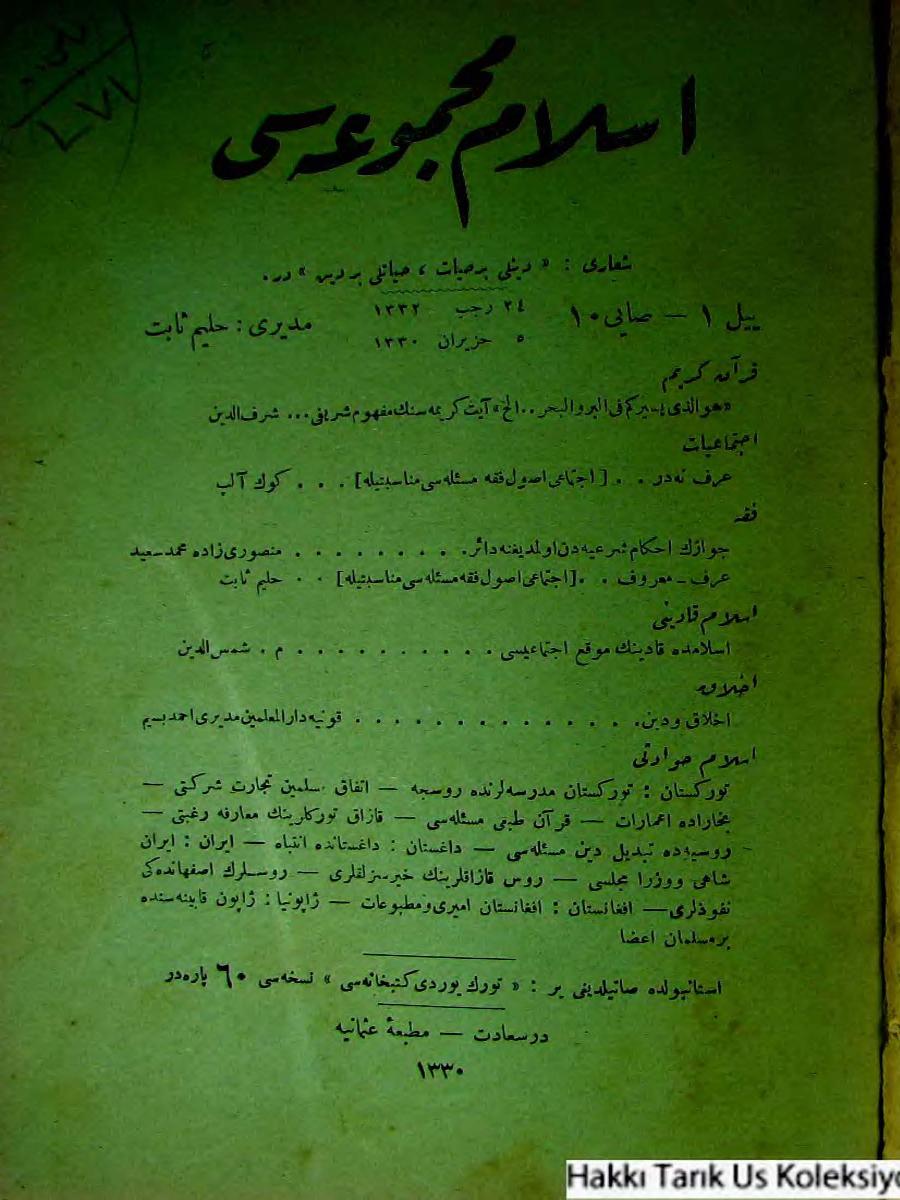 اسلام مجموعه‌سی
شعاری : « دینلی بر حیات ، حیاتلی بر دین » در .
ییل ١ — صایی ١٠
٢٤ رجب ١٣٣٢
٥ حزیران ١٣٣٠
مدیری : حلیم ثابت
قرآن کریم
«هوالذی یسیرکم فی البر والبحر ..الخ» آیت کریمه سنك مفهوم شریفی ... شرف الدین
اجتماعیات
عرف نه در . . [ اجتماعی اصول فقه مسئله سی مناسبتیله ] . . . كوك آلپ
فقه
جوازك احکام شرعیه دن اولمدیغنه دائر . . . . . . . . . منصوری زاده محمد سعید
عرف ـ معروف . . [اجتماعی اصول فقه مسئله سی مناسبتیله] . . حلیم ثابت
اسلام قادینی
اسلامده قادینك موقع اجتماعیسی . . . . . . . . . . م . شمس الدین
اخلاق
اخلاق ودین . . . . . . . . . . . . . . قونیه دارالمعلمین مدیری احمد بسیم
اسلام حوادثی
تورکستان : تورکستان مدرسه لرنده روسجه — اتفاق مسلمین تجارت شرکتی —
بخاراده اعمارات — قرآن طبعی مسئله سی — قازاق تورکلرینك معارفه رغبتی —
روسیه ده تبدیل دین مسئله سی — داغستان : داغستانده انتباه — ایران : ایران
شاهی ووزرا مجلسی — روس قازاقلرینك خیرسزلقلری — روسلرك اصفهانده کی
نفوذلری — افغانستان : افغانستان امیری ومطبوعات — ژاپونیا : ژاپون قابینه سنده
بر مسلمان اعضا
استانبولده صاتیلدیغی یر : « تورك یوردی کتبخانه سی » نسخه سی ٦٠ پاره در
درسعادت — مطبعهٔ عثمانیه
١٣٣٠
Hakkı Tarık Us Koleksiyo